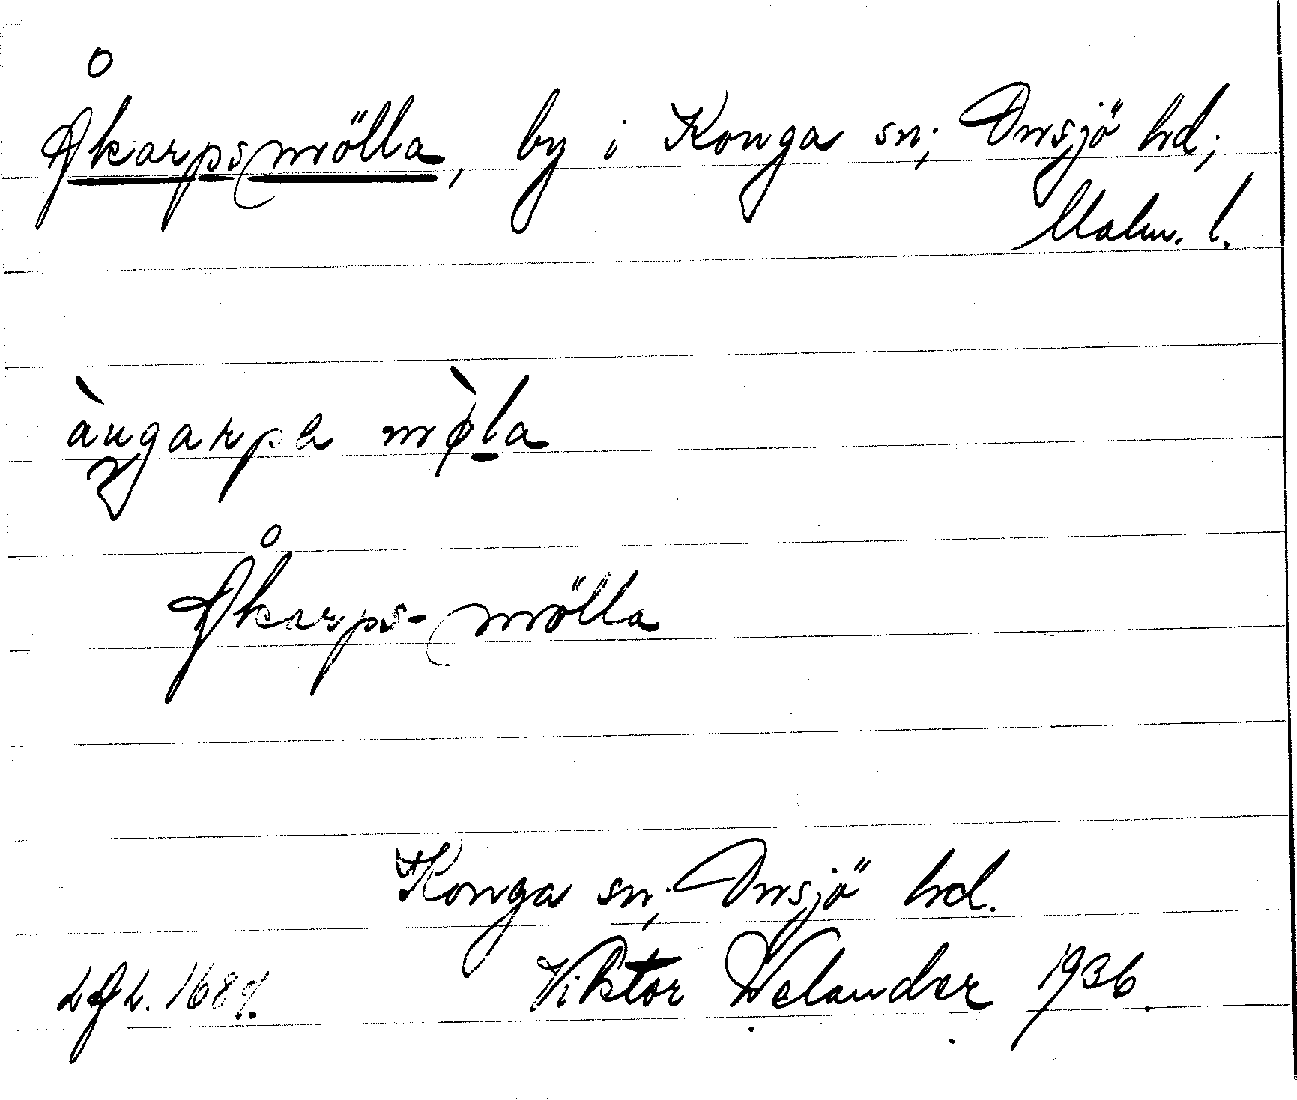 Åkarpsmölla, by i Konga sn; Onsjö hd;
Malm. l.
mø̀la
Åkarps-mölla
Konga sn; Onsjö hd.
Viktor Welander 1936.